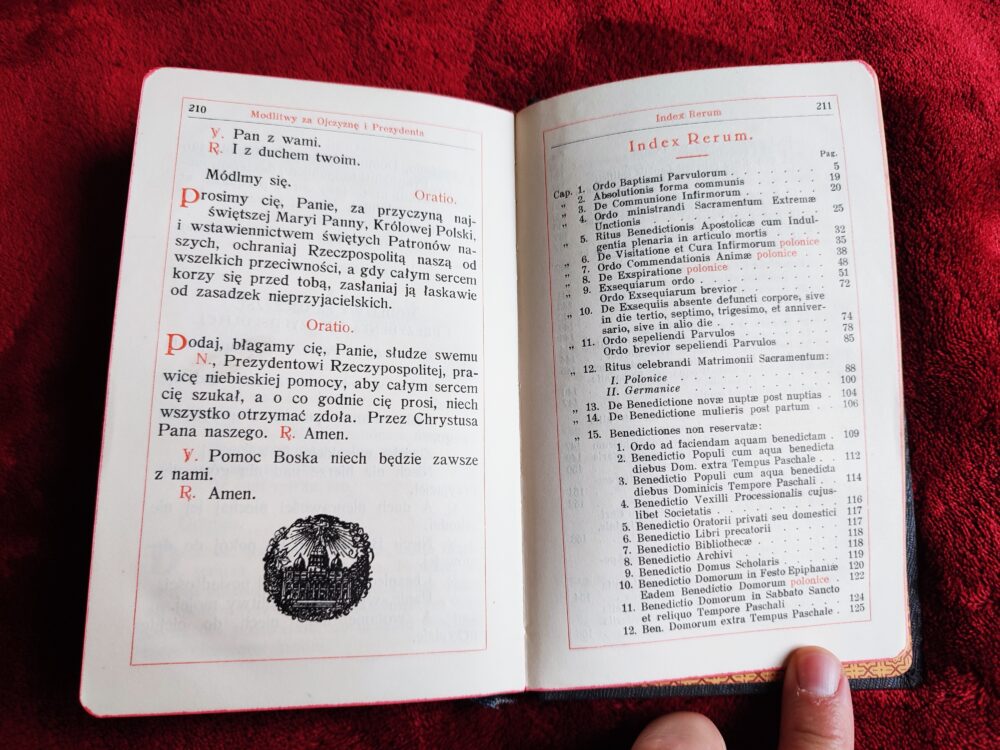 210
Modlitwy za Ojczyznę i Prezydenta
℣. Pan z wami.
℟. I z duchem twoim.
Módlmy się.
Oratio.
Prosimy cię, Panie, za przyczyną naj-
świętszej Maryi Panny, Królowej Polski,
i wstawiennictwem świętych Patronów na-
szych, ochraniaj Rzeczpospolitą naszą od
wszelkich przeciwności, a gdy całym sercem
korzy się przed tobą, zasłaniaj ją łaskawie
od zasadzek nieprzyjacielskich.
Oratio.
Podaj, błagamy cię, Panie, słudze swemu
N., Prezydentowi Rzeczypospolitej, pra-
wicę niebieskiej pomocy, aby całym sercem
cię szukał, a o co godnie cię prosi, niech
wszystko otrzymać zdoła. Przez Chrystusa
Pana naszego. ℟. Amen.
℣. Pomoc Boska niech będzie zawsze
z nami.
℟. Amen.
Index Rerum
211
Index Rerum.
Pag.
Cap. 1. Ordo Baptismi Parvulorum . . . . . . . 5
„ 2. Absolutionis forma communis . . . . . . 19
„ 3. De Communione Infirmorum . . . . . . 20
„ 4. Ordo ministrandi Sacramentum Extremæ
Unctionis . . . . . . . . . . 25
„ 5. Ritus Benedictionis Apostolicæ cum Indul-
gentia plenaria in articulo mortis . . . . 32
„ 6. De Visitatione et Cura Infirmorum polonice 35
„ 7. Ordo Commendationis Animæ polonice . . 38
„ 8. De Exspiratione polonice . . . . . . . 48
„ 9. Exsequiarum ordo . . . . . . . . . 51
Ordo Exsequiarum brevior . . . . . . 72
„ 10. De Exsequiis absente defuncti corpore, sive
in die tertio, septimo, trigesimo, et anniver-
sario, sive in alio die . . . . . . . . 74
„ 11. Ordo sepeliendi Parvulos . . . . . . . 78
Ordo brevior sepeliendi Parvulos . . . . 85
„ 12. Ritus celebrandi Matrimonii Sacramentum:
I. Polonice . . . . . . . . . . 88
II. Germanice . . . . . . . . . 100
„ 13. De Benedictione novæ nuptæ post nuptias . 104
„ 14. De Benedictione mulieris post partum . . 106
„ 15. Benedictiones non reservatæ:
1. Ordo ad faciendam aquam benedictam . 109
2. Benedictio Populi cum aqua benedicta
diebus Dom. extra Tempus Paschale . . 112
3. Benedictio Populi cum aqua benedicta
diebus Dominicis Tempore Paschali . . 114
4. Benedictio Vexilli Processionalis cujus-
libet Societatis . . . . . . . . 116
5. Benedictio Oratorii privati seu domestici 117
6. Benedictio Libri precatorii . . . . . 117
7. Benedictio Bibliothecæ . . . . . . 118
8. Benedictio Archivi . . . . . . . 118
9. Benedictio Domus Scholaris . . . . . 119
10. Benedictio Domorum in Festo Epiphaniæ 120
Eadem Benedictio Domorum polonice . 122
11. Benedictio Domorum in Sabbato Sancto
et reliquo Tempore Paschali . . . . 124
12. Ben. Domorum extra Tempus Paschale . 125